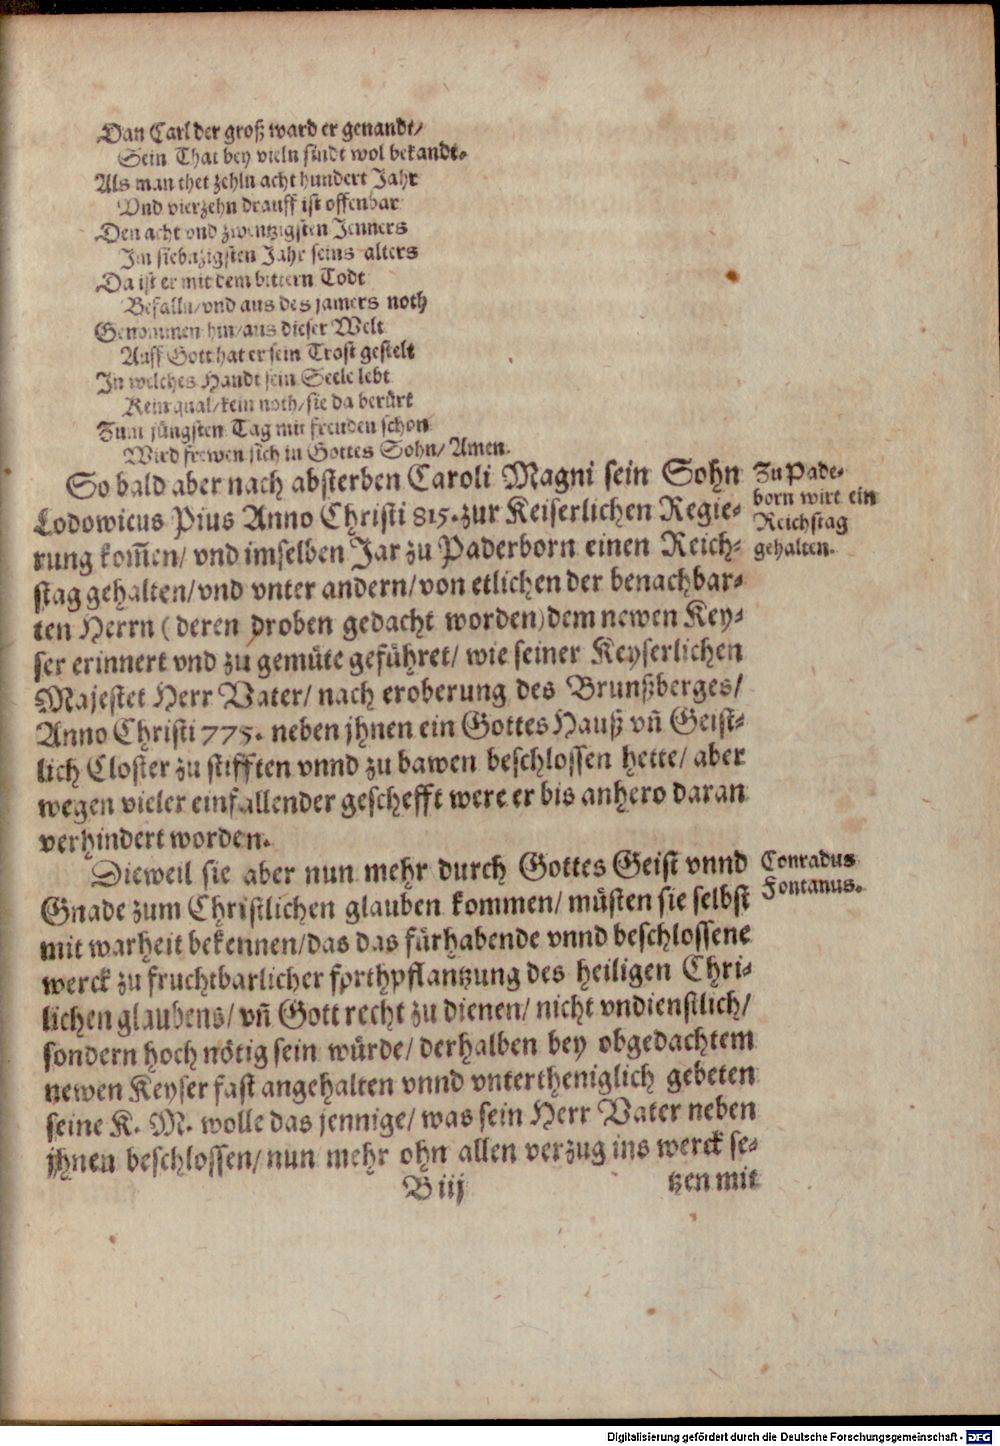 Dan Carl der groß ward er genandt/
Sein That bey vieln sindt wol bekandt.
Als man thet zehln acht hundert Jahr
Vnd vierzehn drauff ist offenbar
Den acht vnd zwentzigsten Jenners
Im siebazigsten Jahr seins alters
Da ist er mit dem bittern Todt
Befalln/vnd aus des jamers noth
Genommen hin/aus dieser Welt
Auff Gott hat er sein Trost gestelt
In welches Handt sein Seele lebt
Kein qual/kein noth/sie da berürt
Zum jüngsten Tag mit freuden schon
Wird frewen sich in Gottes Sohn/ Amen.
So bald aber nach absterben Caroli Magni sein Sohn
Lodowicus Pius Anno Christi 815. zur Keiserlichen Regie-
rung kom̃en/ vnd imselben Jar zu Paderborn einen Reich-
stag gehalten/vnd vnter andern/von etlichen der benachbar-
ten Herrn (deren droben gedacht worden) dem newen Key-
ser erinnert vnd zu gemüte geführet/ wie seiner Keyserlichen
Majestet Herr Vater/ nach eroberung des Brunßberges/
Anno Christi 775. neben jhnen ein Gottes Hauß vn̄ Geist-
lich Closter zu stifften vnnd zu bawen beschlossen hette/ aber
wegen vieler einfallender geschefft were er bis anhero daran
verhindert worden.
Zu Pade-
born wirt ein
Reichstag
gehalten.
Dieweil sie aber nun mehr durch Gottes Geist vnnd
Gnade zum Christlichen glauben kommen/ müsten sie selbst
mit warheit bekennen/das das fürhabende vnnd beschlossene
werck zu fruchtbarlicher forthpflantzung des heiligen Chri-
lichen glaubens/ vn̄ Gott recht zu dienen/ nicht vndienstlich/
sondern hoch nötig sein würde/ derhalben bey obgedachtem
newen Keyser fast angehalten vnnd vntertheniglich gebeten
seine K. M. wolle das jennige/ was sein Herr Vater neben
jhnen beschlossen/ nun mehr ohn allen verzug ins werck se-
Conradus
Fontanus.
B iij
tzen mit
Digitalisierung gefördert durch die Deutsche Forschungsgemeinschaft - DFG